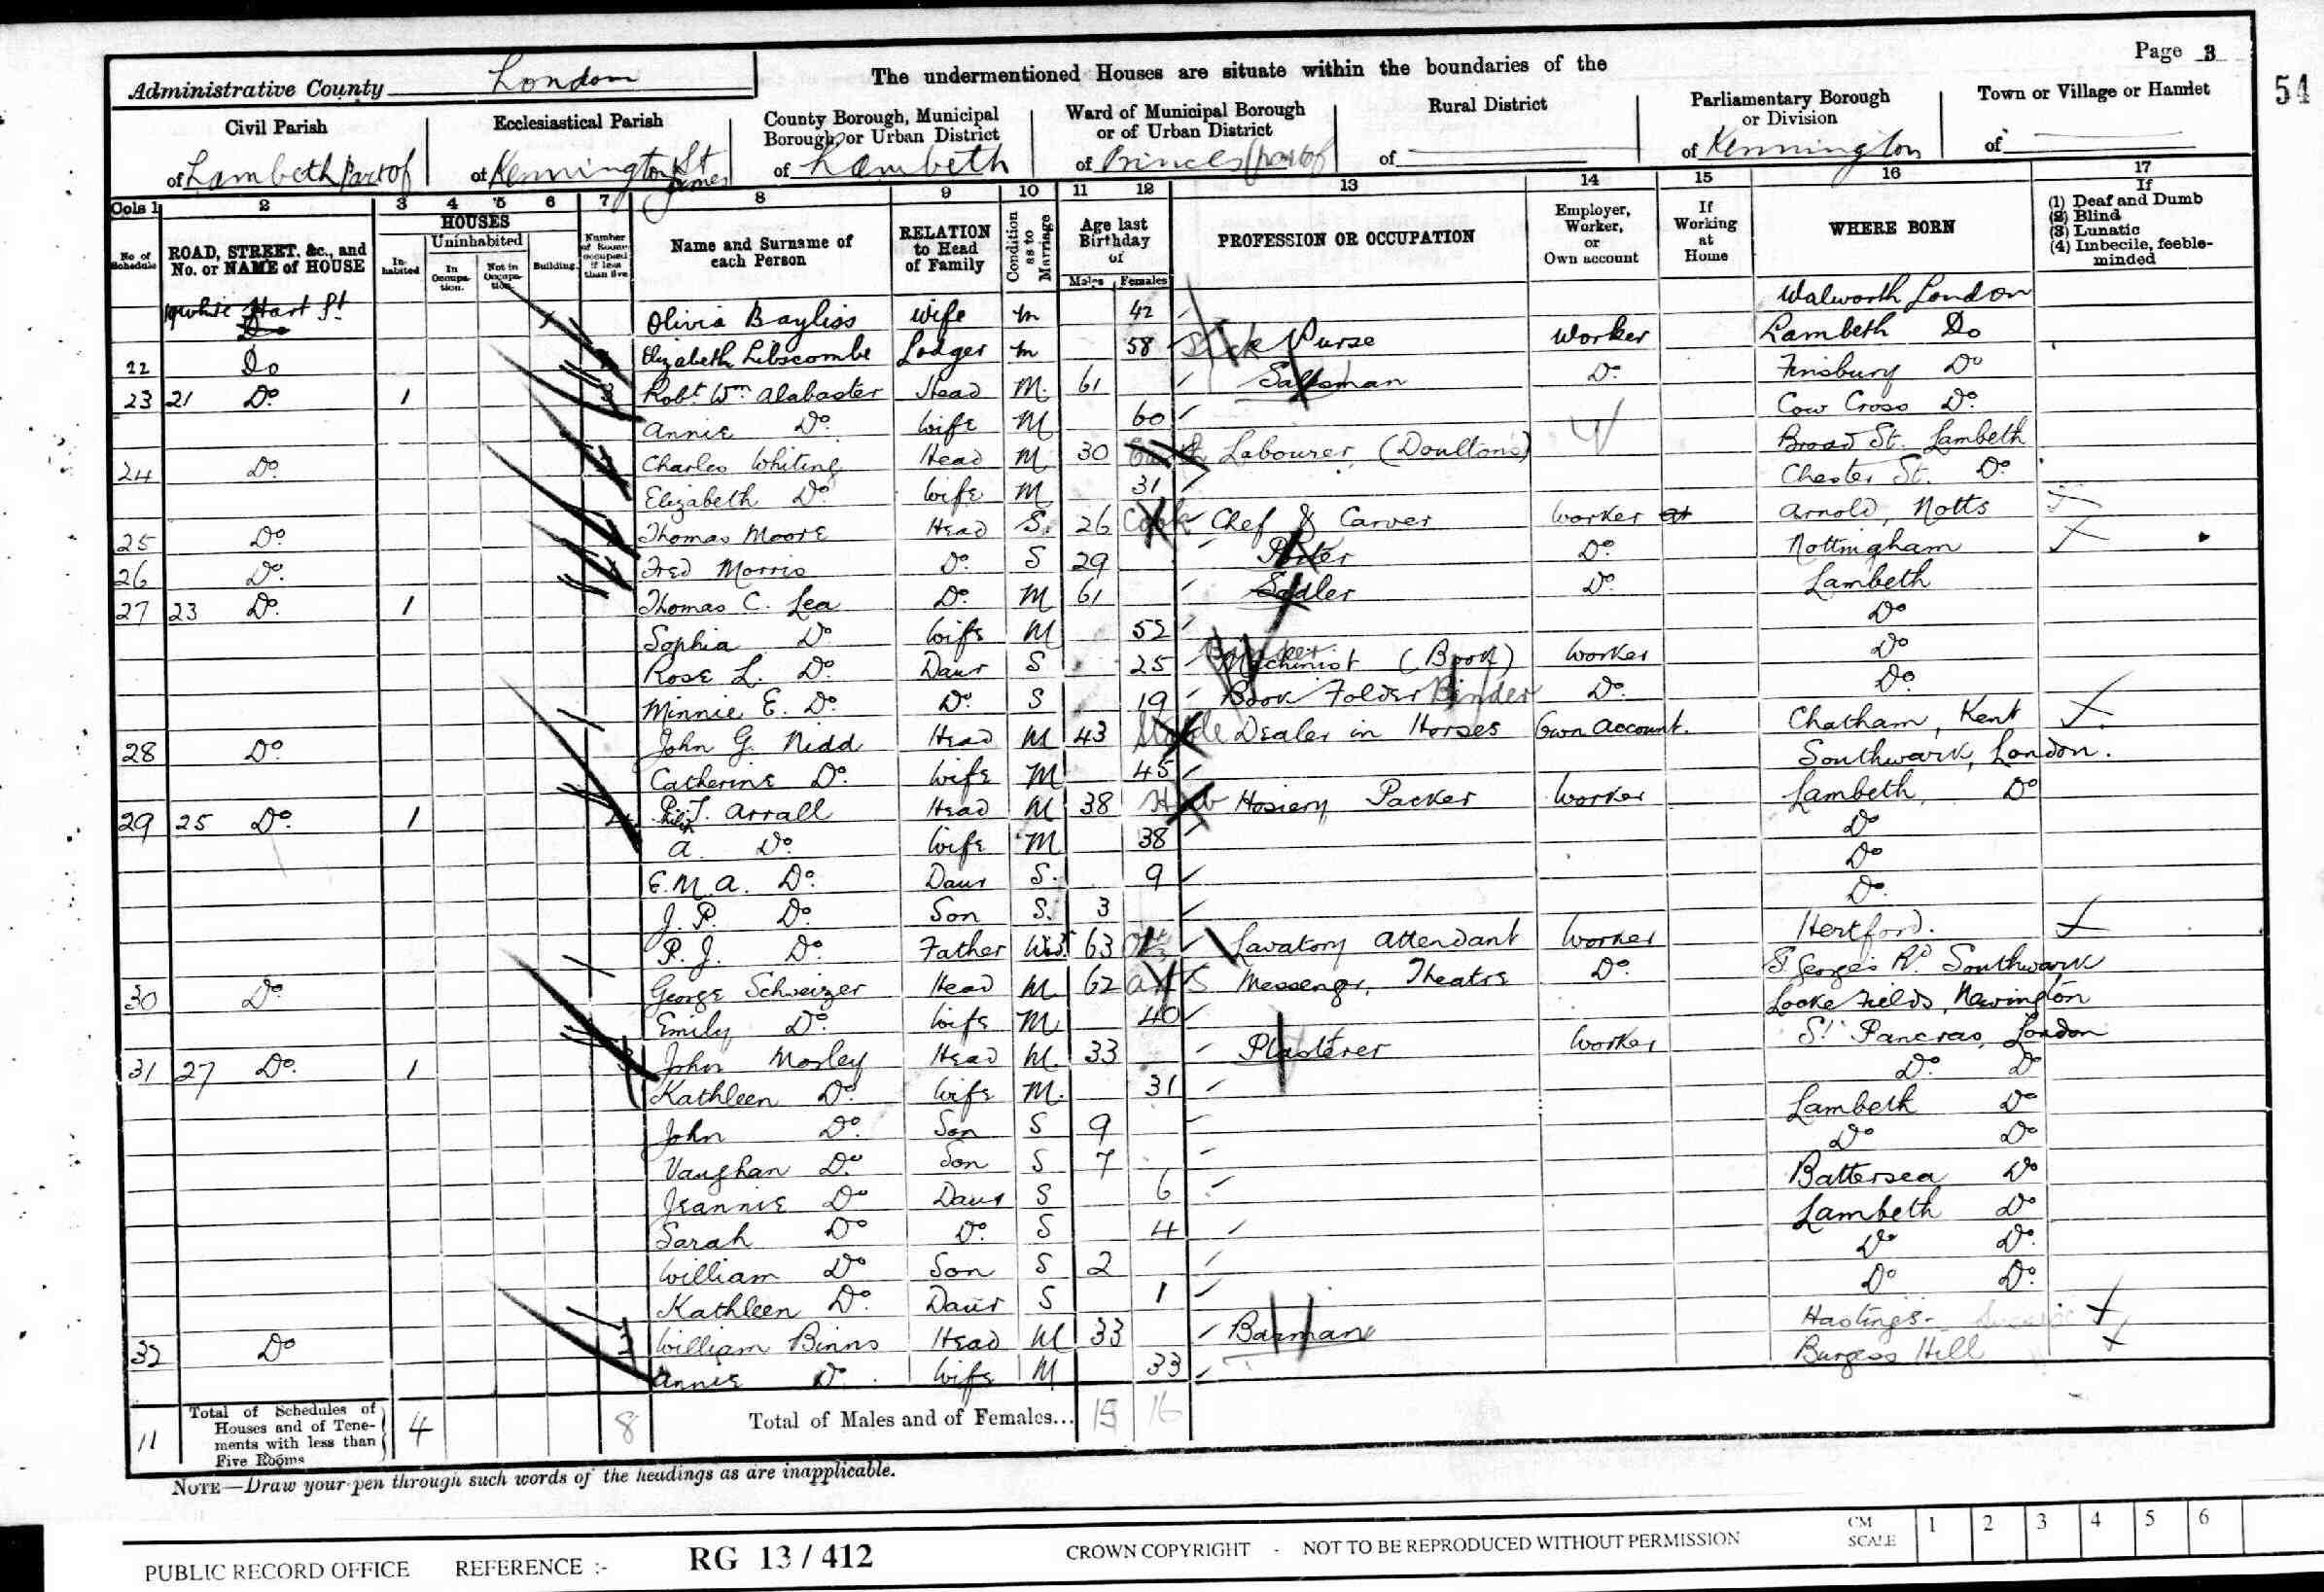 Page 3
54
Administrative County London
The undermentioned Houses are situate within the boundaries of the
Civil Parish
of Lambeth part of
Ecclesiastical Parish
of Kennington St James
County Borough, Municipal Borough, or Urban District
of Lambeth
Ward of Municipal Borough or of Urban District
of Princes (part of
Rural District
of
Parliamentary Borough or Division
of Kennington
Town or Village or Hamlet
of
Cols 1 2 3 4 5 6 7 8 9 10 11 12 13 14 15 16 17
No of Schedule
ROAD, STREET, &c., and No. or NAME of HOUSE
HOUSES
Inhabited
Uninhabited
In Occupation.
Not in Occupation.
Building.
Number of Rooms occupied if less than five
Name and Surname of each Person
RELATION to Head of Family
Condition as to Marriage
Age last Birthday of
Males Females
PROFESSION OR OCCUPATION
Employer, Worker, or Own account
If Working at Home
WHERE BORN
If
(1) Deaf and Dumb
(2) Blind
(3) Lunatic
(4) Imbecile, feeble-minded
19 White Hart St Do Olivia Bayliss Wife M 42 Walworth London
22 Do Elizabeth Libscombe Lodger M 58 Sick Nurse Worker Lambeth Do
23 21 Do 1 3 Robt Wm Alabaster Head M 61 Salesman Do Finsbury Do
Annie Do Wife M 60 Cow Cross Do
24 Do Charles Whiting Head M 30 Labourer (Doultons) W Broad St. Lambeth
Elizabeth Do Wife M 31 Chester St. Do
25 Do Thomas Moore Head S 26 Cook Chef & Carver Worker at Arnold, Notts
26 Do Fred Morris Do S 29 Porter Do Nottingham
27 23 Do 1 Thomas C. Lea Do M 61 Sadler Do Lambeth
Sophia Do Wife M 52 Do
Rose L. Do Daur S 25 Machinist (Book) Worker Do
Minnie E. Do Do S 19 Book Folder Binder Do Do
28 Do John G. Nidd Head M 43 Dealer in Horses Own Account. Chatham, Kent
Catherine Do Wife M 45 Southwark, London.
29 25 Do 1 4 P. T. Arrall Head M 38 Hosiery Packer Worker Lambeth, Do
Philip
A. Do Wife M 38 Do
E. M. A. Do Daur S. 9 Do
J. P. Do Son S. 3 Do
P. J. Do Father Wid. 63 Lavatory Attendant Worker Hertford.
30 Do George Schweizer Head M 62 Messenger, Theatre Do St George's Rd Southwark
Emily Do Wife M 40 Locke Fields, Newington
31 27 Do 1 3 John Morley Head M. 33 Plasterer Worker St Pancras, London
Kathleen Do Wife M. 31 Do Do
John Do Son S 9 Lambeth Do
Vaughan Do Son S 7 Do Do
Jeannie Do Daur S 6 Battersea Do
Sarah Do Do S 4 Lambeth Do
William Do Son S 2 Do Do
Kathleen Do Daur S 1 Do Do
32 Do 3 William Binns Head M 33 Barman Hastings
Annie Do Wife M 33 Burgess Hill
11 Total of Schedules of Houses and of Tenements with less than Five Rooms 4 8 Total of Males and of Females... 15 16
NOTE—Draw your pen through such words of the headings as are inapplicable.
PUBLIC RECORD OFFICE REFERENCE :- RG 13 / 412 CROWN COPYRIGHT - NOT TO BE REPRODUCED WITHOUT PERMISSION CM SCALE 1 2 3 4 5 6